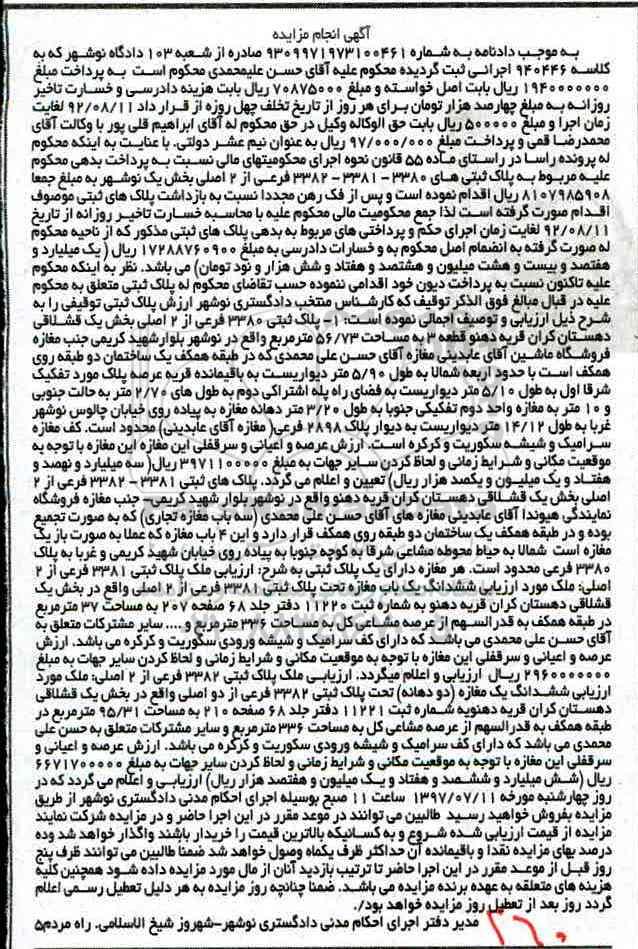 آگهی انجام مزایده
به موجب دادنامه به شماره ۹۳۰۹۹۷۱۹۷۳۱۰۰۴۶۱ صادره از شعبه ۱۰۳ دادگاه نوشهر که به
کلاسه ۹۴۰۴۴۶ اجرائی ثبت گردیده محکوم علیه آقای حسن علیمحمدی محکوم است به پرداخت مبلغ
۱۹۴۰۰۰۰۰۰۰ ریال بابت اصل خواسته و مبلغ ۷۰۸۷۵۰۰۰ ریال بابت هزینه دادرسی و خسارت تاخیر
روزانه به مبلغ چهارصد هزار تومان برای هر روز از تاریخ تخلف چهل روزه از قرار داد ۹۲/۰۸/۱۱ لغایت
زمان اجرا و مبلغ ۵۰۰۰۰۰ ریال بابت حق الوکاله وکیل در حق محکوم له آقای ابراهیم قلی پور با وکالت آقای
محمدرضا قمی و پرداخت مبلغ ۹۷/۰۰۰/۰۰۰ ریال به عنوان نیم عشر دولتی. با عنایت به اینکه محکوم
له پرونده راسا در راستای ماده ۵۵ قانون نحوه اجرای محکومیتهای مالی نسبت به پرداخت بدهی محکوم
علیه مربوط به پلاک ثبتی های ۳۳۸۰ - ۳۳۸۱ - ۳۳۸۲ فرعی از ۲ اصلی بخش یک نوشهر به مبلغ جمعا
۸۱۰۷۹۸۵۹۰۸ ریال اقدام نموده است و پس از فک رهن مجددا نسبت به بازداشت پلاک های ثبتی موصوف
اقدام صورت گرفته است لذا جمع محکومیت مالی محکوم علیه با محاسبه خسارت تاخیر روزانه از تاریخ
۹۲/۰۸/۱۱ لغایت زمان اجرای حکم و پرداختی های مربوط به بدهی پلاک های ثبتی مذکور که از ناحیه محکوم
له صورت گرفته به انضمام اصل محکوم به و خسارات دادرسی به مبلغ ۱۷۲۸۸۷۶۰۹۰۰ ریال ( یک میلیارد و
هفتصد و بیست و هشت میلیون و هشتصد و هفتاد و شش هزار و نود تومان) می باشد. نظر به اینکه محکوم
علیه تاکنون نسبت به پرداخت دیون خود اقدامی ننموده حسب تقاضای محکوم له پلاک ثبتی متعلق به محکوم
علیه در قبال مبالغ فوق الذکر توقیف که کارشناس منتخب دادگستری نوشهر ارزش پلاک ثبتی توقیفی را به
شرح ذیل ارزیابی و توصیف اجمالی نموده است: ۱- پلاک ثبتی ۳۳۸۰ فرعی از ۲ اصلی بخش یک قشلاقی
دهستان کران قریه دهنو قطعه ۳ به مساحت ۵۶/۷۳ مترمربع واقع در نوشهر بلوار شهید کریمی جنب مغازه
فروشگاه ماشین آقای عابدینی مغازه آقای حسن علی محمدی که در طبقه همکف یک ساختمان دو طبقه روی
همکف است با حدود اربعه شمالا به طول ۵/۹۰ متر دیواریست به باقیمانده قریه عرصه پلاک مورد تفکیک
شرقا اول به طول ۵/۱۰ متر دیواریست به فضای راه پله اشتراکی دوم به طول های ۲/۷۰ متر به حالت جنوبی
و ۱۰ متر به مغازه واحد دوم تفکیکی جنوبا به طول ۳/۲۰ متر دهانه مغازه به پیاده روی خیابان چالوس نوشهر
غربا به طول ۱۴/۱۲ متر دیواریست به دیوار پلاک ۲۸۹۸ فرعی( مغازه آقای عابدینی) محدود است. کف مغازه
سرامیک و شیشه سکوریت و کرکره است. ارزش عرصه و اعیانی و سرقفلی این مغازه این مغازه با توجه به
موقعیت مکانی و شرایط زمانی و لحاظ کردن سایر جهات به مبلغ ۳۹۷۱۱۰۰۰۰۰ ریال( سه میلیارد و نهصد و
هفتاد و یک میلیون و یکصد هزار ریال) تعیین و اعلام می گردد. پلاک های ثبتی ۳۳۸۱ - ۳۳۸۲ فرعی از ۲
اصلی بخش یک قشلاقی دهستان کران قریه دهنو واقع در نوشهر بلوار شهید کریمی- جنب مغازه فروشگاه
نمایندگی هیوندا آقای عابدینی مغازه های آقای حسن علی محمدی (سه باب مغازه تجاری) که به صورت تجمیع
بوده و در طبقه همکف یک ساختمان دو طبقه روی همکف قرار دارد و این ۴ باب مغازه که عملا به صورت باز یک
مغازه است شمالا به حیاط محوطه مشاعی شرقا به کوچه جنوبا به پیاده روی خیابان شهید کریمی و غربا به پلاک
۳۳۸۰ فرعی محدود است. هر مغازه دارای یک پلاک ثبتی به شرح: ارزیابی ملک پلاک ثبتی ۳۳۸۱ فرعی از ۲
اصلی: ملک مورد ارزیابی ششدانگ یک باب مغازه تحت پلاک ثبتی ۳۳۸۱ فرعی از ۲ اصلی واقع در بخش یک
قشلاقی دهستان کران قریه دهنو به شماره ثبت ۱۱۲۲۰ دفتر جلد ۶۸ صفحه ۲۰۷ به مساحت ۳۷ مترمربع
در طبقه همکف به قدرالسهم از عرصه مشاعی کل به مساحت ۳۳۶ مترمربع و .... سایر مشترکات متعلق به
آقای حسن علی محمدی می باشند که دارای کف سرامیک و شیشه ورودی سکوریت و کرکره می باشد. ارزش
عرصه و اعیانی و سرقفلی این مغازه با توجه به موقعیت مکانی و شرایط زمانی و لحاظ کردن سایر جهات به مبلغ
۲۹۶۰۰۰۰۰۰۰ ریال ارزیابی و اعلام میگردد. ارزیابی ملک پلاک ثبتی ۳۳۸۲ فرعی از ۲ اصلی: ملک مورد
ارزیابی ششدانگ یک مغازه (دو دهانه) تحت پلاک ثبتی ۳۳۸۲ فرعی از دو اصلی واقع در بخش یک قشلاقی
دهستان کران قریه دهنو به شماره ثبت ۱۱۲۲۱ دفتر جلد ۶۸ صفحه ۲۱۰ به مساحت ۹۵/۳۱ مترمربع در
طبقه همکف به قدرالسهم از عرصه مشاعی کل به مساحت ۳۳۶ مترمربع و سایر مشترکات متعلق به حسن علی
محمدی می باشد که دارای کف سرامیک و شیشه ورودی سکوریت و کرکره می باشد. ارزش عرصه و اعیانی و
سرقفلی این مغازه با توجه به موقعیت مکانی و شرایط زمانی و لحاظ کردن سایر جهات به مبلغ ۶۶۷۱۷۰۰۰۰۰
ریال (شش میلیارد و ششصد و هفتاد و یک میلیون و هفتصد هزار ریال) ارزیابی و اعلام می گردد که در
روز چهارشنبه مورخه ۱۳۹۷/۰۷/۱۱ ساعت ۱۱ صبح بوسیله اجرای احکام مدنی دادگستری نوشهر از طریق
مزایده بفروش خواهید رسید طالبین می توانند در موعد مقرر در این اجرا حاضر و در مزایده شرکت نمایند
مزایده از قیمت ارزیابی شده شروع و به کسانیکه بالاترین قیمت را خریدار باشند واگذار خواهد شد وده
درصد بهای مزایده نقدا و باقیمانده آن حداکثر ظرف یکماه وصول خواهد شد ضمنا طالبین می توانند ظرف پنج
روز قبل از موعد مقرر در این اجرا حاضر تا ترتیب بازدید آنان از مال مورد مزایده داده شود همچنین کلیه
هزینه های متعلقه به عهده برنده مزایده می باشد. ضمنا چنانچه روز مزایده به هر دلیل تعطیل رسمی اعلام
گردد روز بعد از تعطیل روز مزایده خواهد بود./
مدیر دفتر اجرای احکام مدنی دادگستری نوشهر-شهروز شیخ الاسلامی. راه مردم۵